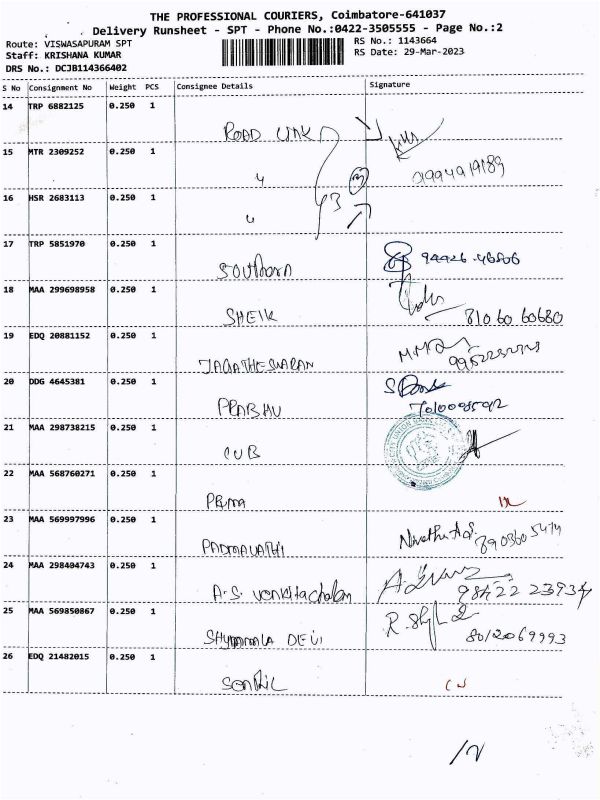 THE PROFESSIONAL COURIERS, Coimbatore-641037
Delivery Runsheet - SPT - Phone No.:0422-3505555 - Page No.:2
Route: VISWASAPURAM SPT RS No.: 1143664
Staff: KRISHANA KUMAR RS Date: 29-Mar-2023
DRS No.: DCJB114366402
S No Consignment No Weight PCS Consignee Details Signature
14 TRP 6882125 0.250 1
ROAD LINK
15 MTR 2309252 0.250 1
" 3 9994919189
16 HSR 2683113 0.250 1
"
17 TRP 5851970 0.250 1
SOUTHERN 94426 46806
18 MAA 299698958 0.250 1
SHEIK 81060 60680
19 EDQ 20881152 0.250 1
JAGATHESWARAN
20 DDG 4645381 0.250 1
PRABHU
21 MAA 298738215 0.250 1
CUB CITY UNION BANK
22 MAA 568760271 0.250 1
PRIMA
23 MAA 569997996 0.250 1
PADMAVATHI
24 MAA 298404743 0.250 1
A.S. Venkitachalam 98422 23934
25 MAA 569850867 0.250 1
SHYAMALA DEVI 8012069993
26 EDQ 21482015 0.250 1
SENTHIL